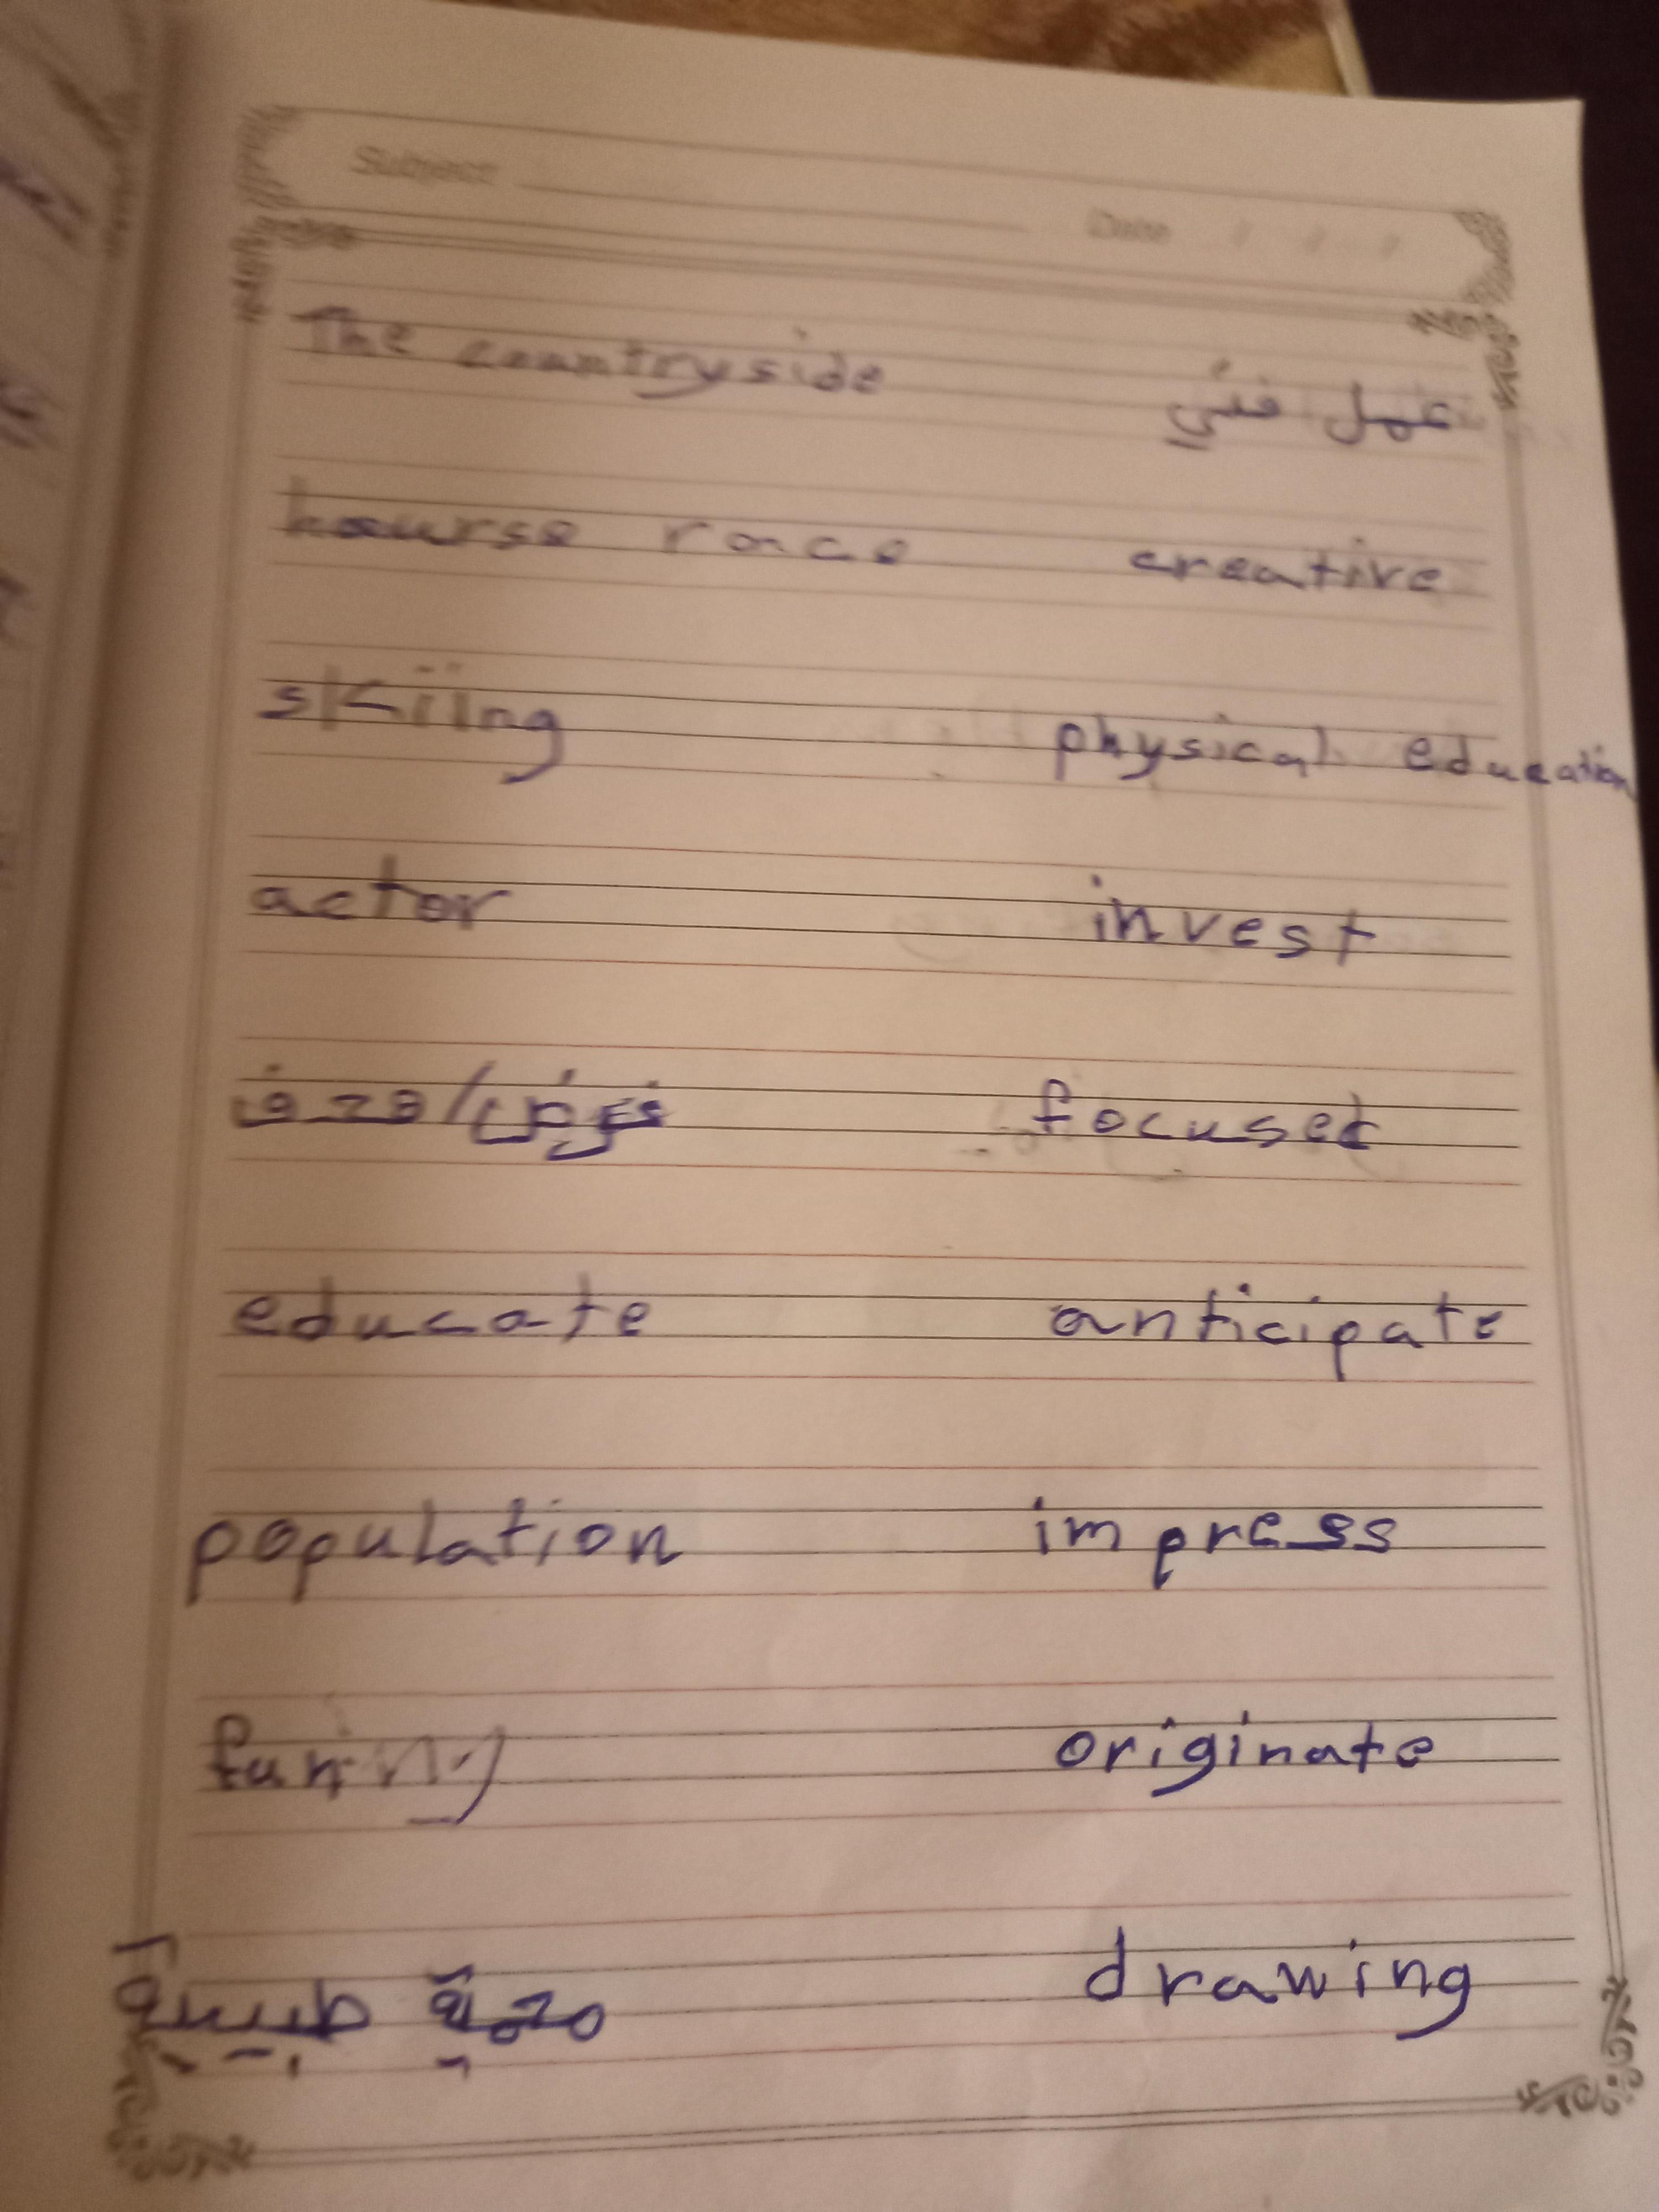 Subject Date / / /
The countryside عمل فني
hourse race creative
skiing physical education
actor invest
focused
educate anticipate
population impress
funny originate
drawing